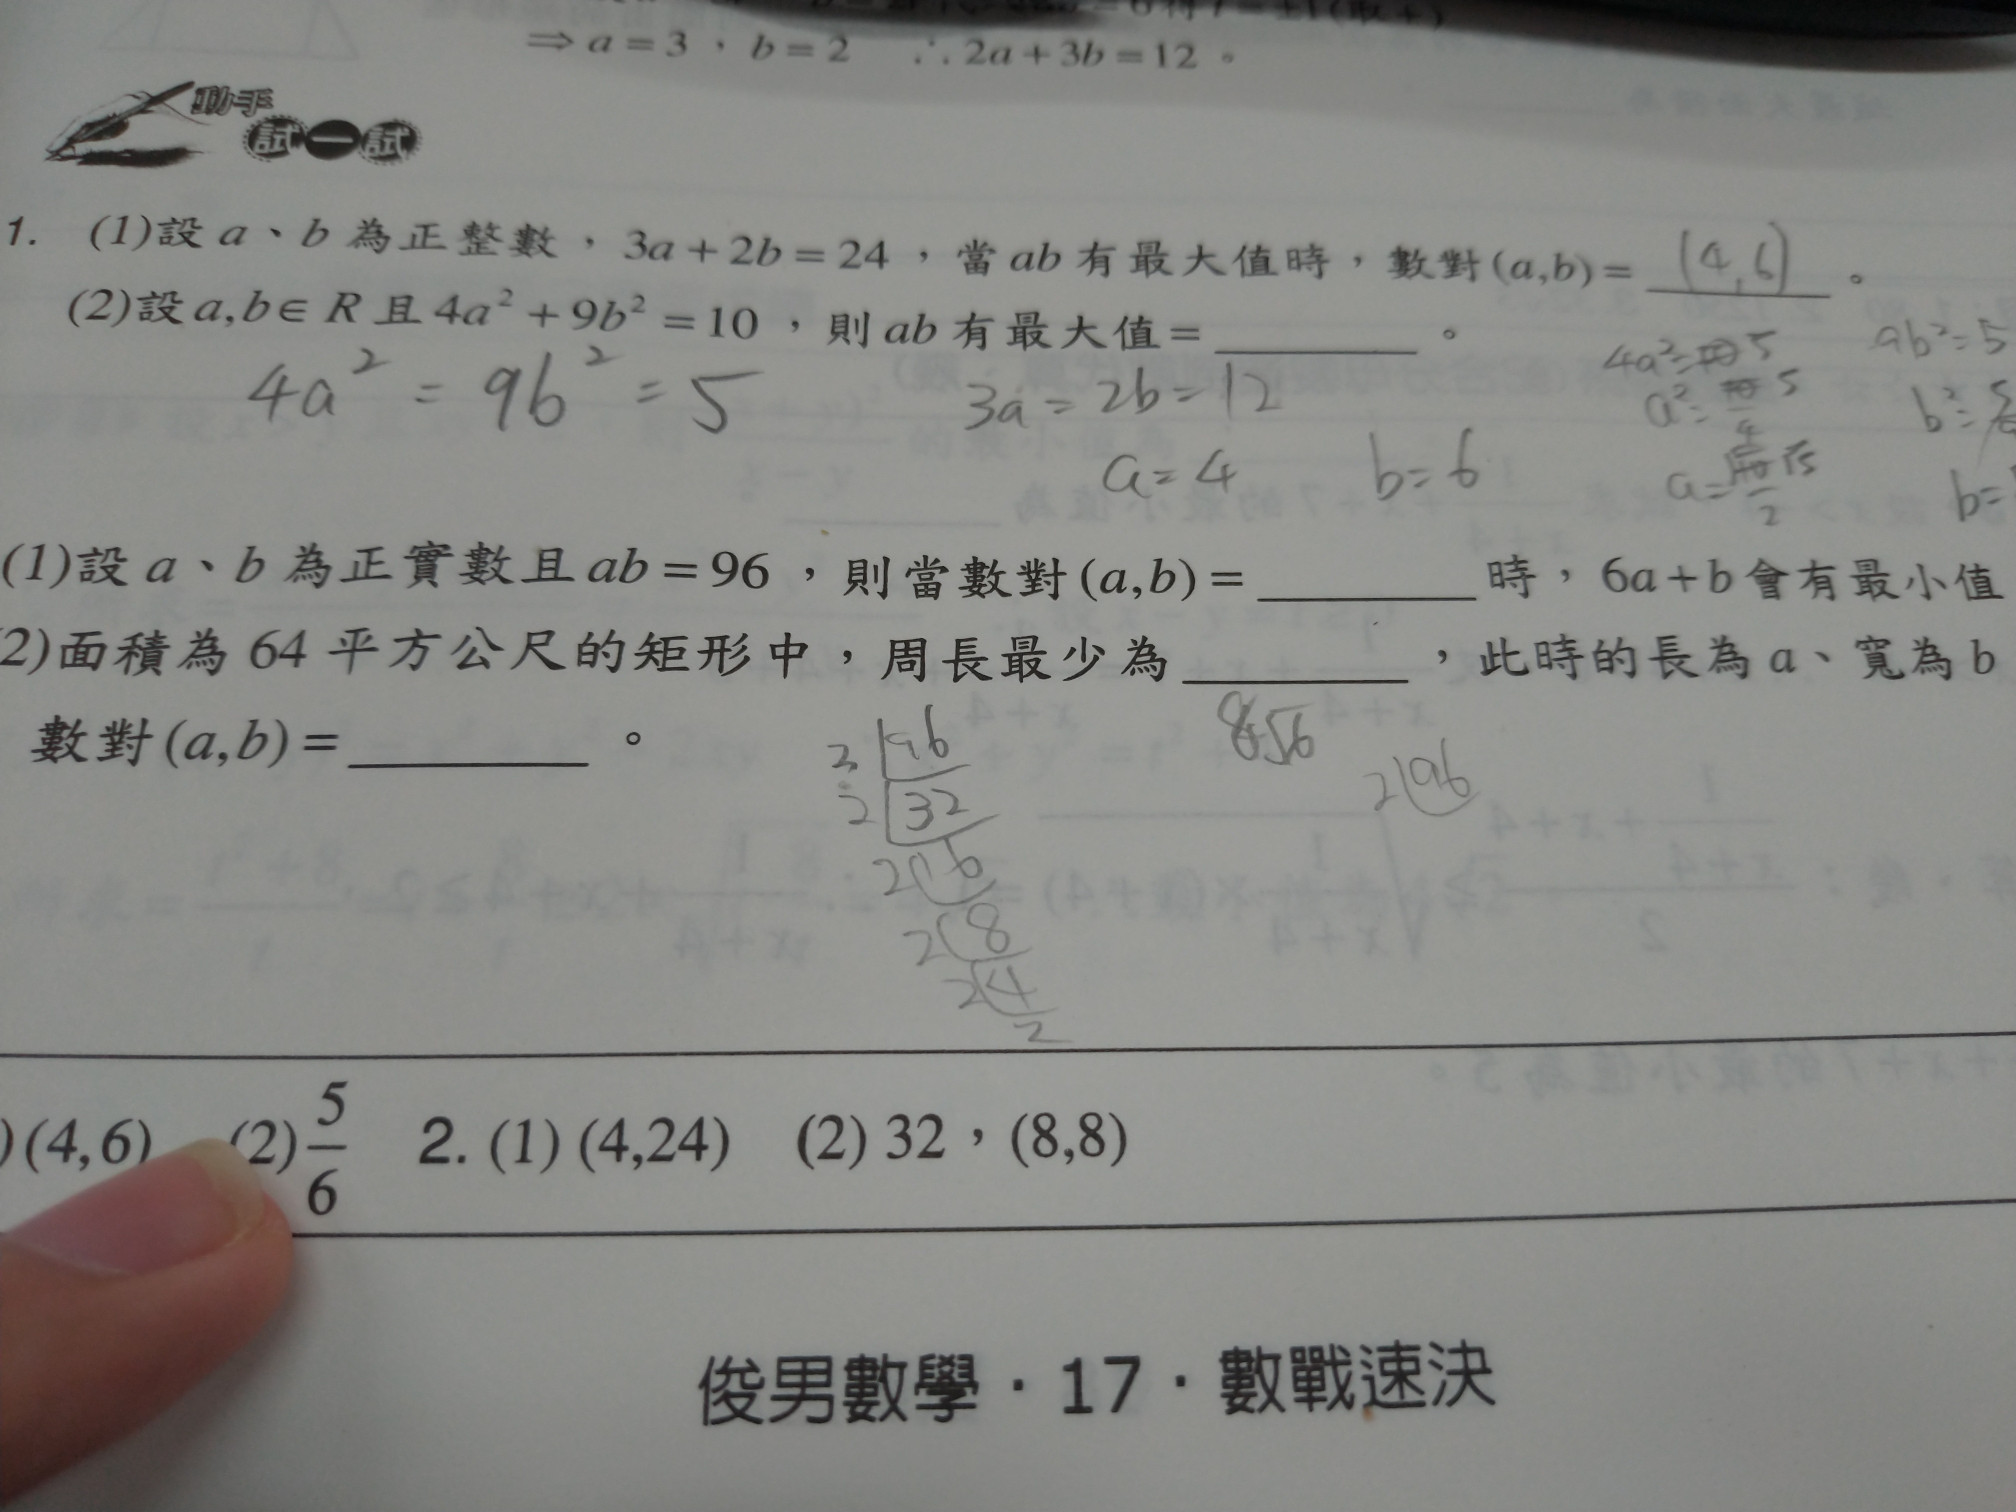 ⇒ a = 3 , b = 2 ∴ 2a + 3b = 12 。
動手
試一試
1. (1)設 a、b 為正整數,3a + 2b = 24,當 ab 有最大值時,數對(a,b) = (4,6) 。
(2)設 a,b∈ R 且 4a² + 9b² = 10,則 ab 有最大值 = ________ 。
4a² = 9b² = 5
3a = 2b = 12
a = 4 b = 6
4a² = 5
a² = 5/4
a = √5/2
9b² = 5
b² =
b =
(1)設 a、b 為正實數且 ab = 96,則當數對(a,b) = ________ 時,6a + b 會有最小值
2)面積為 64 平方公尺的矩形中,周長最少為 ________ ,此時的長為 a、寬為 b
數對(a,b) = ________ 。
3 96
2 32
2 16
2 8
2 4
2
2 96
)(4,6) (2) 5/6 2. (1) (4,24) (2) 32,(8,8)
俊男數學・17・數戰速決